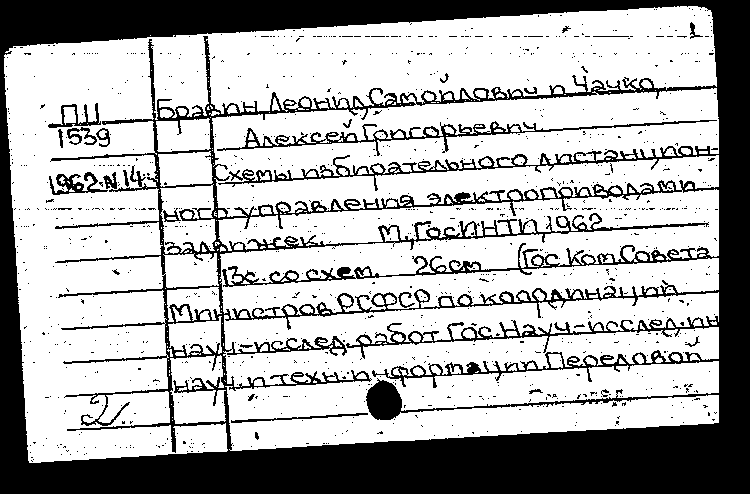 1
П11 Бравин, Леонид Самойлович и Чачко,
1539 Алексей Григорьевич
Схемы избирательного дистанцион-
1962.N.14. ного управления электроприводами
задвижек. М., ГосИНТИ, 1962
13с. со схем. 26см (Гос Ком. Совета
Министров РСФСР по координации
науч-исслед. работ Гос. Науч-исслед. ин
науч. и техн. информации. Передовой
2.